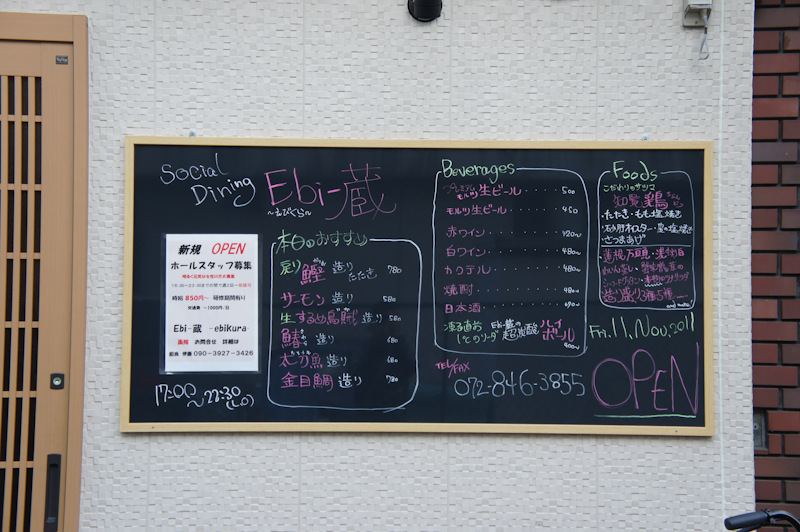 Social
Dining
Ebi-蔵
～えびくら～
新規 OPEN
ホールスタッフ募集
時給 850円～ 研修期間有り
Ebi-蔵 -ebikura-
面接 お問合せ 詳細は
担当 伊藤 090-3927-3426
17:00
～22:30(L.O)
本日のおすすめ
戻り鰹 造り たたき 780
サーモン 造り 580
生するめ烏賊 造り 580
鰆 造り 680
太刀魚 造り 680
金目鯛 造り 780
Beverages
プレミアム
モルツ 生ビール 500
モルツ 生ビール 450
赤ワイン 420～
白ワイン 480～
カクテル 480～
焼酎 480～
日本酒
Ebi-蔵の
超炭酸 ハイボール
400～
TEL/FAX
072-846-3855
Foods
こだわりのサツマ
知覧 鶏
・たたき・もも塩焼き
さつまあげ
造り盛り
and more!
Fri.11,Nov,2011
OPEN